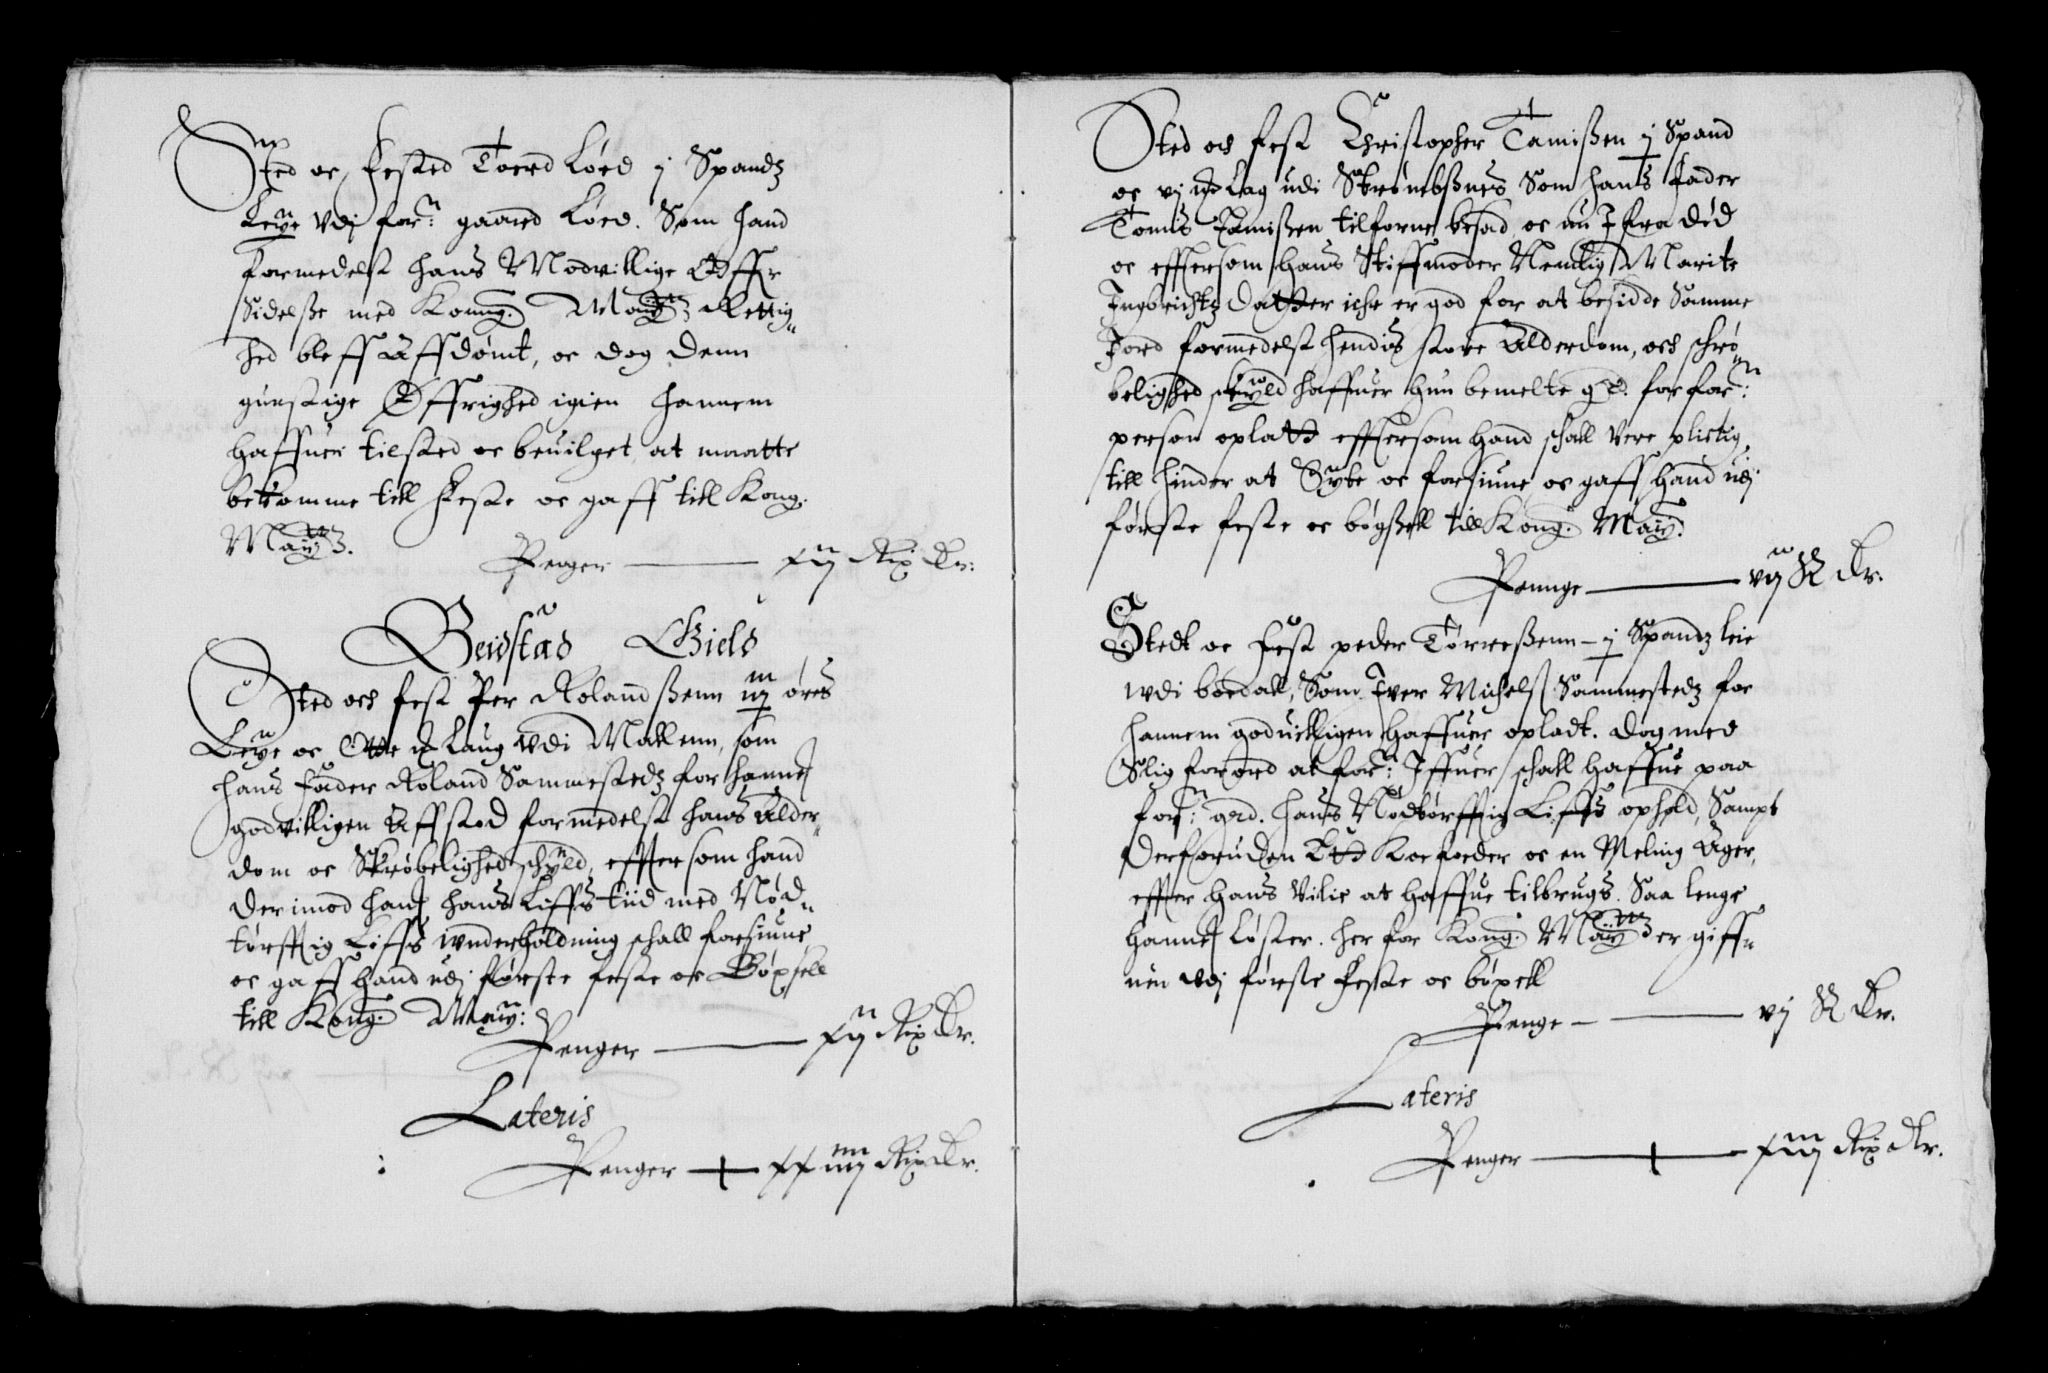 Sted oc fested Toerd Løed j Spandz
Leye vdj forn: gaard Løed. Som hand
formedelst hans Modvillige Offuer
Sidelße med Konng. Maytz Rettig¬
hed bleff Affdømt, oc dog denn
gunstige Øffrighed igien hannem
haffuer tilsted oc beuilget at maatte
bekomme till Feste oc gaff till Kong.
Maytz.
Penger — xij Rix Dr:
Beidstad Gield
Sted och fest Per Rolandßenn iij øres
Leye oc Otte Laug vdi Mallenn, som
hans Fader Roland Sammestedz for hannem
godvilligen Affstod formedelst hans Alder¬
dom oc Skrøbelighed schyld, effter som hand
derimod hans Liffs tiid med Nød¬
tørfftig Liffs wnderholdning schall forsiune
oc gaff hand udj første feste oc Böxsell
till Kong. May:
Penger — xij Rix Dr.
Lateris
Penger — xxiiij Rix Dr.
Sted och fest Christopher Tamißen j Spand
oc vj Lag udi Skrømbßnes Som hans Fader
Tomis Tamißen tilforne besad, oc nu Ifra død
oc efftersom hans Stiffmoder Nemlig Marite
Ingbrichtz Datter iche er god for at besidde Samme
Jord formedelst hendis store Alderdom, och schrø¬
belighed schyld haffuer hun bemelte gd. for forn:
person opladt efftersom hand schall vere plictig
till hinder at Dyke oc forsiune, oc gaff hand udj
første feste oc bøgßell till Kong. May.
Pennge — vij R Dr.
Stedt oc Fest peder Tørresßenn – j Spandz leie
wdi boedall, Som Iver Michels Sammestedz for
hannem goduilligen haffuer opladt. dog med
Slig forord at forn: Iffuer schall haffue paa
forn: grd. hans Nødtørfftig Liffs ophold, Sampt
derforuden Koe foeder oc en Meling Ager,
effter hans Vilie at haffue tilbrugs. Saa lenge
hannem Løster. her for Kong. Maytz er giff¬
uen vdj første Feste oc bøxell
Penge — vj R Dr.
Lateris
Penger — xiij Rix Dlr.